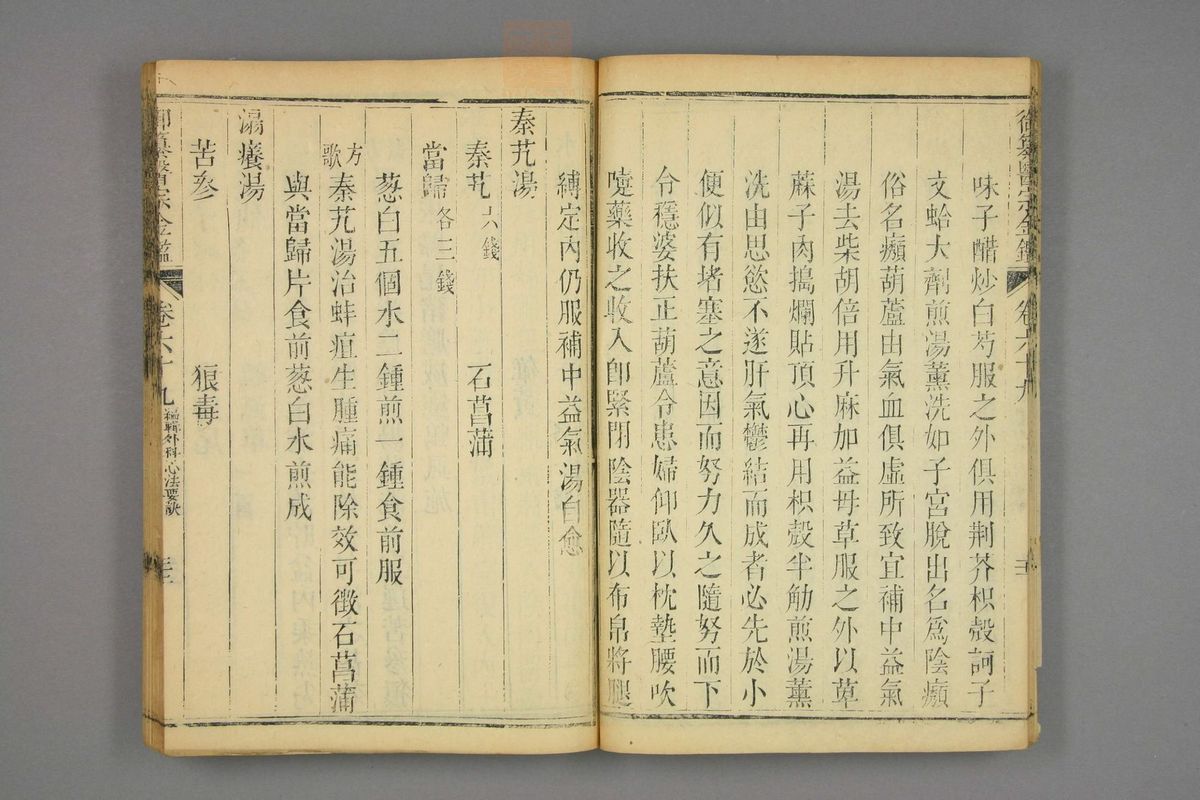 御纂醫宗金鑑 卷六十九
味子醋炒白芍服之外俱用荆芥枳殼訶子
文蛤大劑煎湯薰洗如子宮脫出名爲陰㿗
俗名㿗葫蘆由氣血俱虛所致宜補中益氣
湯去柴胡倍用升麻加益母草服之外以草
蔴子肉搗爛貼頂心再用枳殼半觔煎湯薰
洗由思慾不遂肝氣鬱結而成者必先於小
便似有堵塞之意因而努力久之隨努而下
令穩婆扶正葫蘆令患婦仰臥以枕墊腰吹
嚔藥收之收入卽緊閉陰器隨以布帛將腿
縛定內仍服補中益氣湯自愈
秦艽湯
秦艽六錢 石菖蒲
當歸各三錢
葱白五個水二鍾煎一鍾食前服
方歌 秦艽湯治蚌疽生腫痛能除效可徵石菖蒲
與當歸片食前葱白水煎成
溻癢湯
苦參 狼毒
御纂醫宗金鑑 卷六十九 編輯外科心法要訣